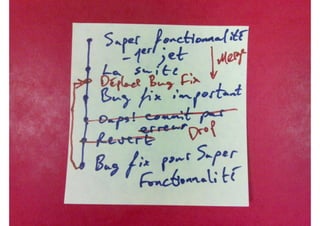 Super fonctionnalité
- 1er jet
Merge
La suite
Déplacer Bug Fix
Bug fix important
Oops! commit par
erreur
Drop
Revert
Bug fix pour Super
Fonctionnalité